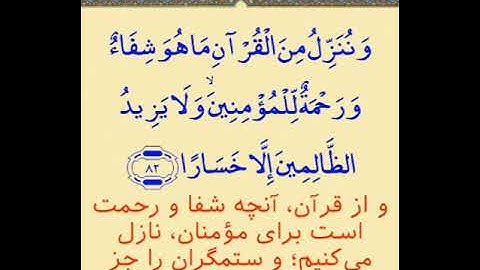 وَنُنَزِّلُ مِنَ الْقُرْآنِ مَا هُوَ شِفَاءٌ
وَرَحْمَةٌ لِّلْمُؤْمِنِينَ ۙ وَلَا يَزِيدُ
الظَّالِمِينَ إِلَّا خَسَارًا ﴿٨٢﴾
و از قرآن، آنچه شفا و رحمت
است برای مؤمنان، نازل
می‌کنیم؛ و ستمگران را جز